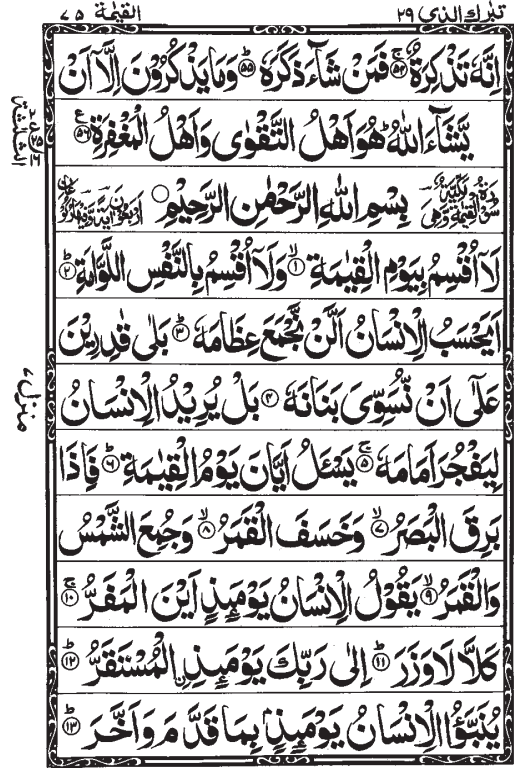 تبٰرك الذي ٢٩
القيٰمة ٧٥
اِنَّهٗ تَذْكِرَةٌ ۚ﴿۵۴﴾ فَمَنْ شَآءَ ذَكَرَهٗ ؕ﴿۵۵﴾ وَمَا يَذْكُرُوْنَ اِلَّاۤ اَنْ
يَّشَآءَ اللّٰهُ ؕ هُوَ اَهْلُ التَّقْوٰى وَاَهْلُ الْمَغْفِرَةِ ﴿۵۶﴾ ع
بِسْمِ اللّٰهِ الرَّحْمٰنِ الرَّحِيْمِ
لَاۤ اُقْسِمُ بِيَوْمِ الْقِيٰمَةِ ۙ﴿۱﴾ وَلَاۤ اُقْسِمُ بِالنَّفْسِ اللَّوَّامَةِ ؕ﴿۲﴾
اَيَحْسَبُ الْاِنْسَانُ اَلَّنْ نَّجْمَعَ عِظَامَهٗ ؕ﴿۳﴾ بَلٰى قٰدِرِيْنَ
عَلٰٓى اَنْ نُّسَوِّىَ بَنَانَهٗ ﴿۴﴾ بَلْ يُرِيْدُ الْاِنْسَانُ
لِيَفْجُرَ اَمَامَهٗ ۚ﴿۵﴾ يَسْـَٔلُ اَيَّانَ يَوْمُ الْقِيٰمَةِ ؕ﴿۶﴾ فَاِذَا
بَرِقَ الْبَصَرُ ۙ﴿۷﴾ وَخَسَفَ الْقَمَرُ ۙ﴿۸﴾ وَجُمِعَ الشَّمْسُ
وَالْقَمَرُ ۙ﴿۹﴾ يَقُوْلُ الْاِنْسَانُ يَوْمَئِذٍ اَيْنَ الْمَفَرُّ ۚ﴿۱۰﴾
كَلَّا لَا وَزَرَ ؕ﴿۱۱﴾ اِلٰى رَبِّكَ يَوْمَئِذِ ۨالْمُسْتَقَرُّ ؕ﴿۱۲﴾
يُنَبَّؤُا الْاِنْسَانُ يَوْمَئِذٍۭ بِمَا قَدَّمَ وَاَخَّرَ ؕ﴿۱۳﴾
منزل ۷